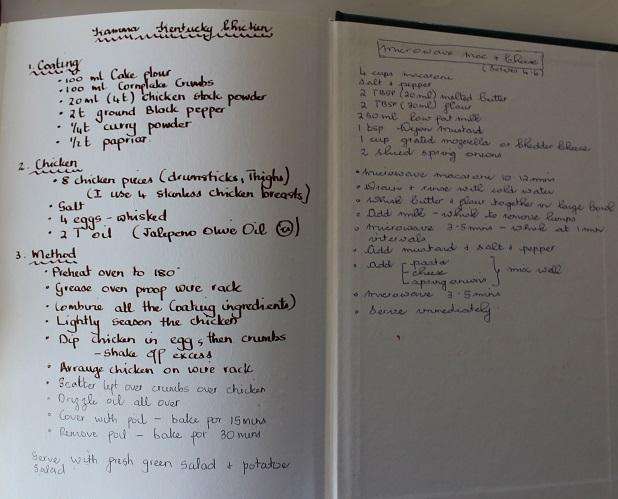 Kentucky Chicken
1. Coating
• 100 ml Cake flour
• 100 ml Cornflake Crumbs
• 20ml (4t) Chicken Stock powder
• 2t ground Black pepper
• ¼t curry powder
• ½t
2. Chicken
• 8 chicken pieces (drumsticks, Thighs)
(I use 4 skinless chicken breasts)
• Salt
• 4 eggs - whisked
• 2 T oil (Jalepeno Olive Oil
3. Method
• Preheat oven to 180°
• Grease oven proof wire rack
• Combine all the (Coating ingredients)
• Lightly season the chicken
• Dip chicken in egg, then crumbs
- shake off excess
• Arrange chicken on wire rack
• Scatter left over crumbs over chicken
• Drizzle oil all over
• Cover with foil - bake for 15 mins
• Remove foil - bake for 30 mins
Serve with fresh green salad + potatoe
salad
Microwave Mac + Cheese
(Serves 4-6)
4 cups macaroni
Salt + pepper
2 TBSP (30ml) melted butter
2 TBSP (30ml) flour
250 ml low fat milk
1 tsp Dijon mustard
1 cup grated mozzerella or Cheddar Cheese
2 sliced spring onions
• Microwave macaroni 10-12 min
• Drain + rinse with cold water
• Whisk butter + flour together in large bowl
• Add milk - whisk to remove lumps
• Microwave 3-5 mins - whisk at 1 min
intervals
• Add mustard + salt + pepper
• Add pasta
cheese mix well
spring onions
• Microwave 3-5 mins
• Serve immediately